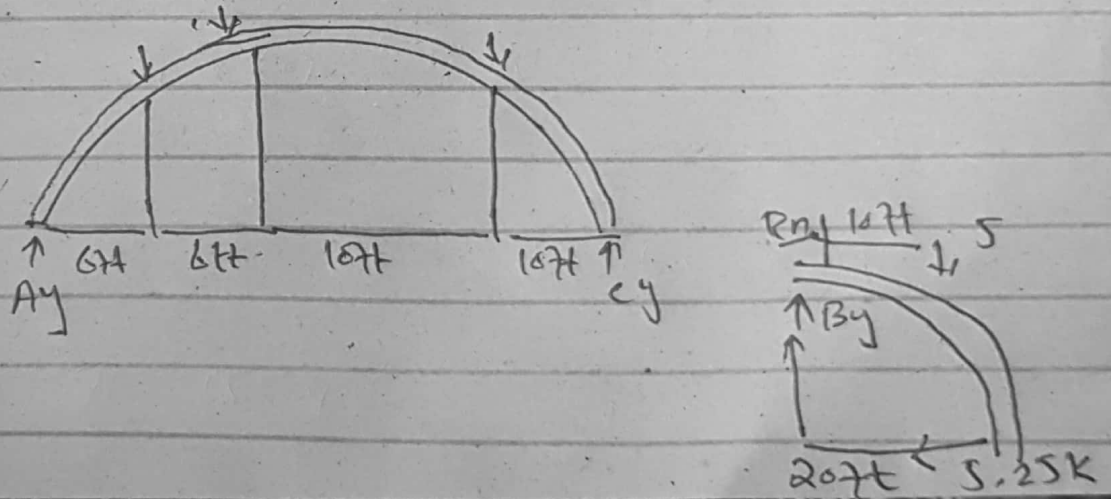 6ft 6ft 10ft 10ft
Ay Cy
10ft 5
By
20ft 5.25K